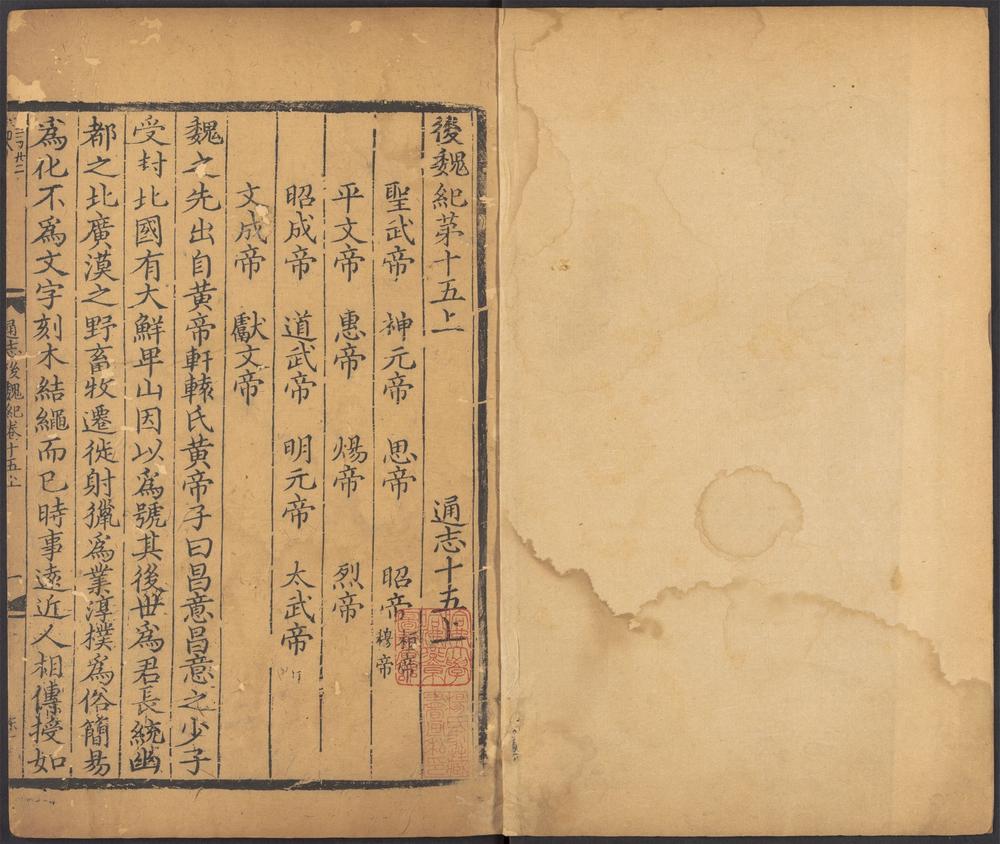 後魏紀第十五上 通志十五上
聖武帝 神元帝 思帝 昭帝 桓帝 穆帝
平文帝 惠帝 煬帝 烈帝
昭成帝 道武帝 明元帝 太武帝
文成帝 獻文帝
魏之先出自黄帝軒轅氏黄帝子曰昌意昌意之少子
受封北國有大鮮卑山因以爲號其後世爲君長統幽
都之北廣漠之野畜牧遷徙射獵爲業淳樸爲俗簡易
爲化不爲文字刻木結繩而已時事遠近人相傳授如
通志後魏紀卷十五上 一